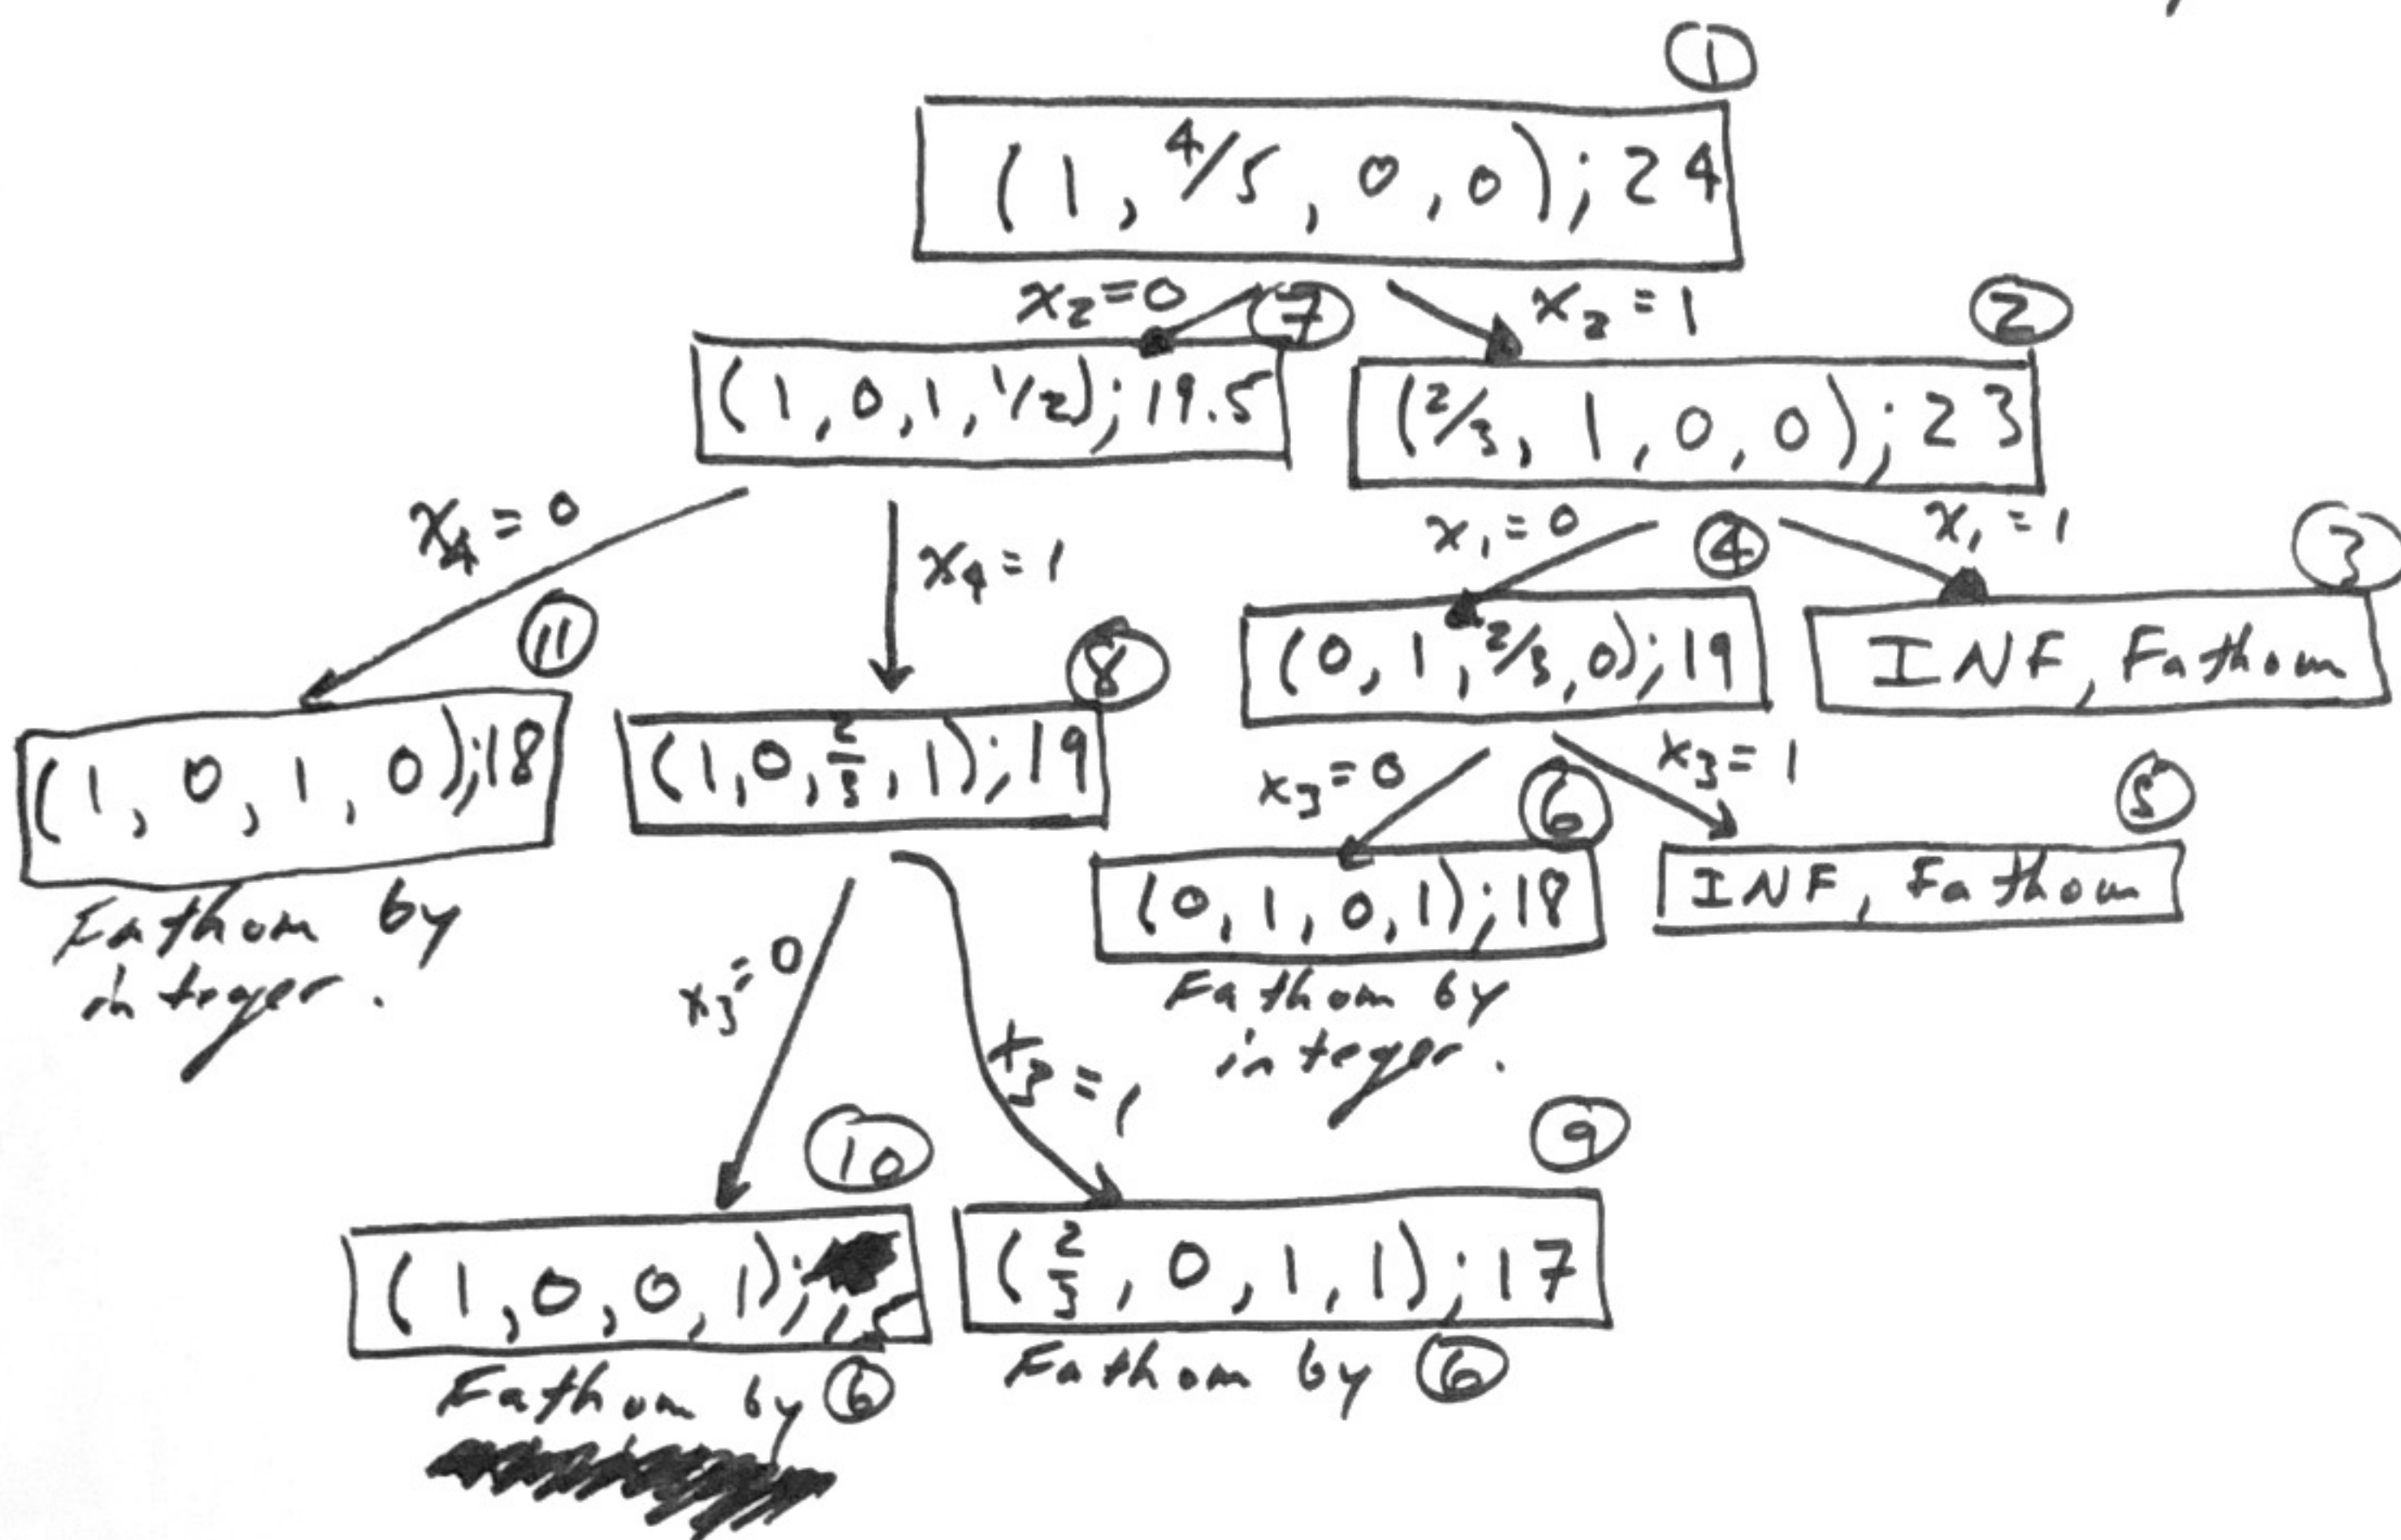 ①
(1, 4/5, 0, 0); 24
x₂=0
⑦
x₂=1
②
(1, 0, 1, 1/2); 19.5
(2/3, 1, 0, 0); 23
x₄=0
x₄=1
x₁=0
④
x₁=1
③
⑪
⑧
(0, 1, 2/3, 0); 19
INF, Fathom
(1, 0, 1, 0); 18
(1, 0, 2/3, 1); 19
x₃=0
⑥
x₃=1
⑤
Fathom by
integer.
(0, 1, 0, 1); 18
INF, Fathom
x₃=0
Fathom by
integer.
x₃=1
⑩
⑨
(1, 0, 0, 1);
(2/3, 0, 1, 1); 17
Fathom by ⑥
Fathom by ⑥